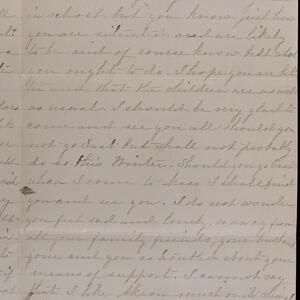 in school but you know just how
you are situated and are likely
to be and of course know best what
you ought to do. I hope you are
that the children are as well
as usual. I should be very glad to
come and see you all should you
not go East but shall not probably
do so this Winter. Should you go East
when I come to Mass I shall find
you and see you. I do not wonder
you feel sad and lonely, so away from
all your family friends, your husband
gone and you so about your
means of support. I cannot say
that I like Akron much and